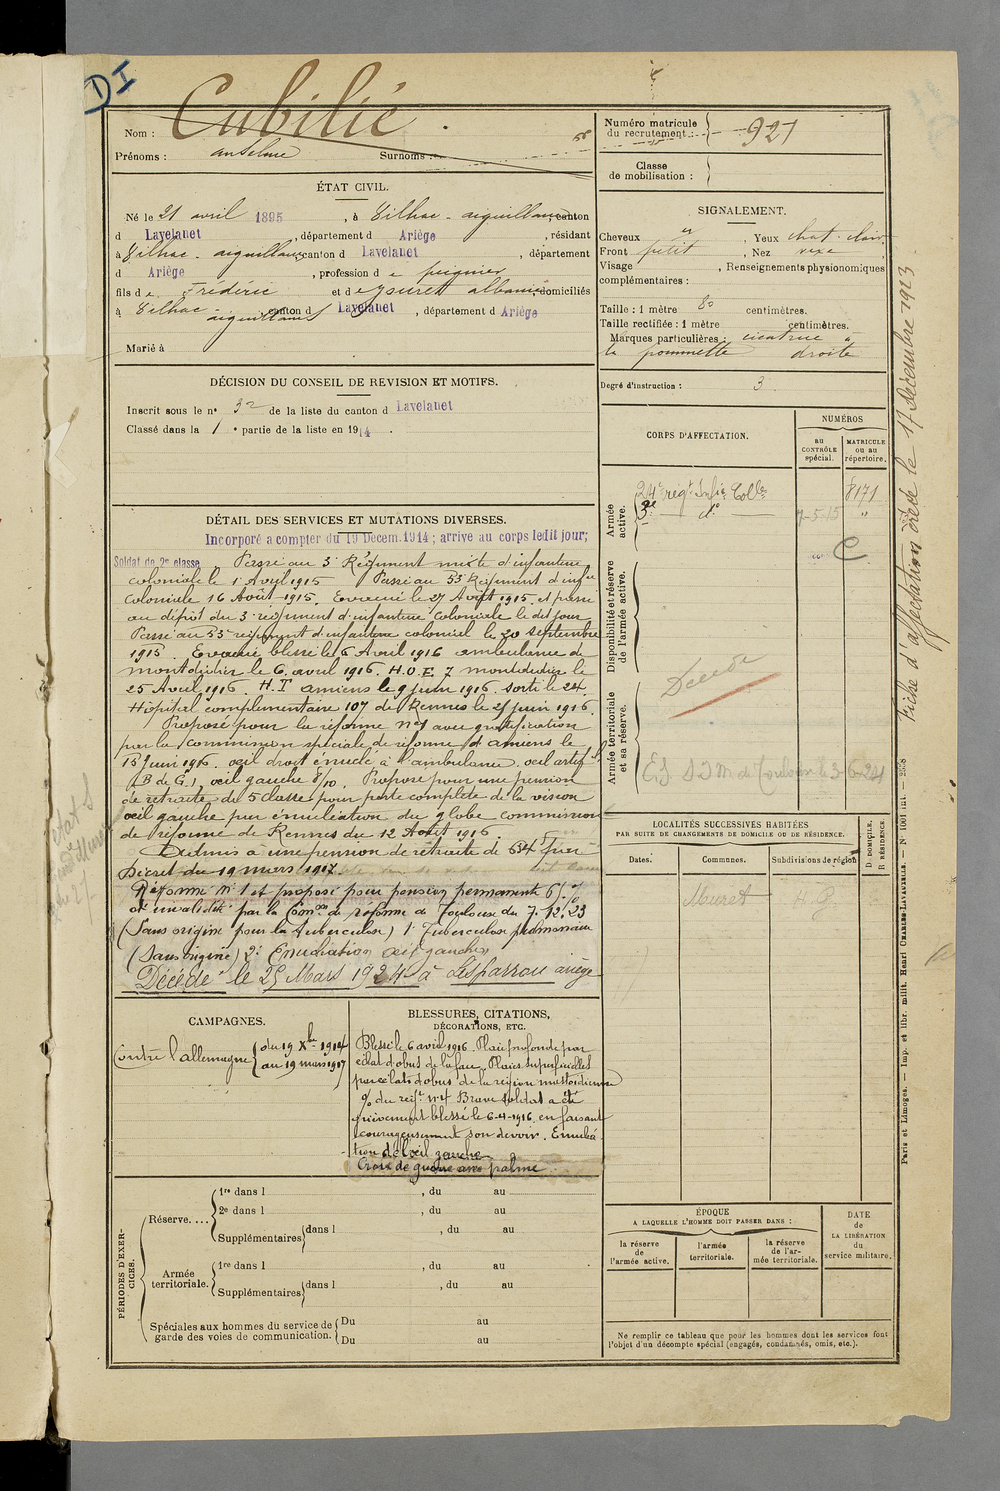 DI
Nom : Cubilié .
Prénoms : anselme Surnoms :
Numéro matricule
du recrutement : 921
Classe
de mobilisation :
ÉTAT CIVIL.
Né le 21 avril 1895, à Vilhac - aiguillanes canton
d Lavelanet, département d Ariège, résidant
à Vilhac - aiguillanes canton d Lavelanet, département
d Ariège, profession de peignier
fils de Frédéric et d eysuret albanie domiciliés
à Vilhac aiguillanes canton d Lavelanet, département d Ariège
Marié à
SIGNALEMENT.
Cheveux, Yeux chat. clair
Front petit, Nez vexe
Visage, Renseignements physionomiques
complémentaires :
Taille : 1 mètre 80 centimètres.
Taille rectifiée : 1 mètre centimètres.
Marques particulières : cicatrice a
la pommette droite
Degré d'instruction : 3
DÉCISION DU CONSEIL DE REVISION ET MOTIFS.
Inscrit sous le nº 32 de la liste du canton d Lavelanet
Classé dans la 1e partie de la liste en 1914.
CORPS D'AFFECTATION.
NUMÉROS
AU
CONTRÔLE
spécial.
MATRICULE
ou au
répertoire.
Armée
active.
24e régt Infie Colle 8171
3e dº 7-5-15 "
C
Disponibilité et réserve
de l'armée active.
Décédé
Armée territoriale
et sa réserve.
ES SDM de Toulouse le 3-6-24
DÉTAIL DES SERVICES ET MUTATIONS DIVERSES.
Incorporé à compter du 19 Décem. 1914 ; arrivé au corps ledit jour;
Soldat de 2e classe Passé au 3e Régiment mixte d'infanterie
coloniale le 1 Avril 1915 Passé au 53 Régiment d'infie
Coloniale 16 Août 1915. Evacué le 27 Août 1915 et passé
au dépôt du 3e régiment d'infanterie Coloniale le dit jour
Passé au 53e régiment d'infanterie colonial le 20 septembre
1915. Evacué blessé le 6 Avril 1916 ambulance de
montdidier le 6. avril 1916. H.O.E. 7 montdidier le
25 Avril 1916. H.T amiens le 9 juin 1916 sorti le 24.
Hôpital complémentaire 107 de Rennes le 25 juin 1916.
Proposé pour la réforme nº1 avec gratification
par la commission spéciale de réforme d'amiens le
15 juin 1916. oeil droit énuclé à l'ambulance. oeil artifel
(B de G.), oeil gauche 8/10. Proposé pour une pension
de retraite de 5 classe pour perte complète de la vision
oeil gauche par énucléation du globe commission
de réforme de Rennes du 12 Août 1916.
Admis à une pension de retraite de 654f par
Décret du 19 mars 1917
Réformé nº 1 et proposé pour pension permanente 65%
d'invalidité par la Comon de réforme de Toulouse du 7.12.23
(Sans origine pour la tuberculose) 1º Tuberculose pulmonaire
(Sans origine) 2º Enucléation oeil gauche
Décédé le 25 Mars 1924 à Lesparrou ariège
LOCALITÉS SUCCESSIVES HABITÉES
PAR SUITE DE CHANGEMENTS DE DOMICILE OU DE RÉSIDENCE.
D. DOMICILE.
R. RÉSIDENCE.
Dates. Communes. Subdivisions de région
Muret
CAMPAGNES.
Contre l'allemagne du 19 Xbre 1914
au 19 mars 1917
BLESSURES, CITATIONS,
DÉCORATIONS, ETC.
Blessé le 6 avril 1916. Plaie profonde par
éclat d'obus de la face. Plaies superficielles
par éclats d'obus de la région mastoïdienne
% du régt nº4 Brave soldat a été
grièvement blessé le 6-4-1916 en faisant
courageusement son devoir. Enucléa-
tion de l'oeil gauche.
Croix de guerre avec palme
PÉRIODES D'EXER-
CICES.
Réserve....
1re dans l , du au
2e dans l , du au
Supplémentaires dans l , du au
Armée
territoriale.
1re dans l , du au
Supplémentaires dans l , du au
Spéciales aux hommes du service de
garde des voies de communication.
Du au
Du au
ÉPOQUE
A LAQUELLE L'HOMME DOIT PASSER DANS :
la réserve
de
l'armée active.
l'armée
territoriale.
la réserve
de l'ar-
mée territoriale.
DATE
de
LA LIBÉRATION
du
service militaire.
Ne remplir ce tableau que pour les hommes dont les services font
l'objet d'un décompte spécial (engagés, condamnés, omis, etc.).
Fiche d'affectation créée le 17 décembre 1923
Paris et Limoges. — Imp. et libr. milit. Henri CHARLES-LAVAUZELLE. — Nº 1001 int. — 2508